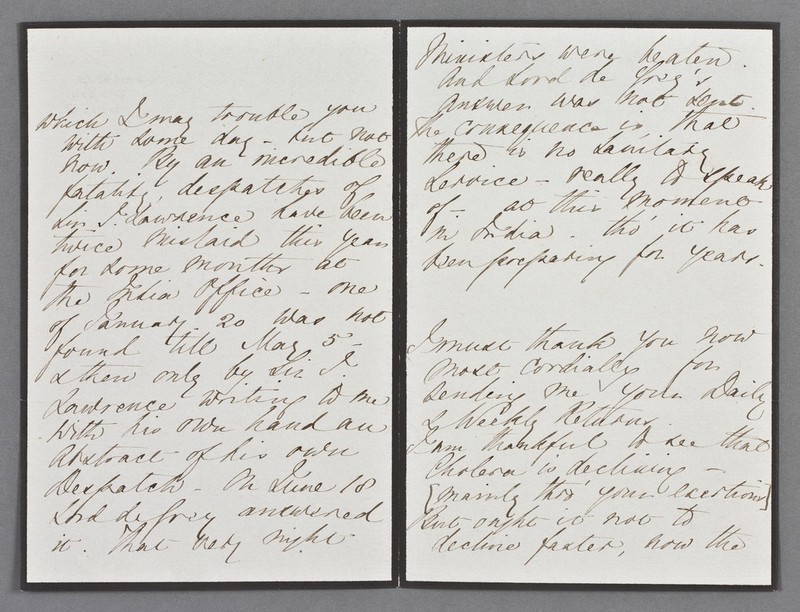 which I may trouble you
with some day - but not
now. By an incredible
fatality, despatches of
Sir J. Lawrence have been
twice mislaid this year
for some months at
the India Office - one
of January 20 was not
found till May 5 -
& then only by Sir J.
Lawrence writing to me
with his own hand an
Abstract of his own
Despatch - On June 18
Lord de Grey answered
it. That very night
Ministers were beaten.
And Lord de Grey's
answer was not sent.
The consequence is, that
there is no Sanitary
Service - really to speak
of - at this moment
in India - tho' it has
been preparing for years.
I must thank you now
most cordially for
sending me your Daily
& Weekly Returns.
I am thankful to see that
Cholera is declining -
[mainly thro' your exertions]
But ought it not to
decline faster, now the